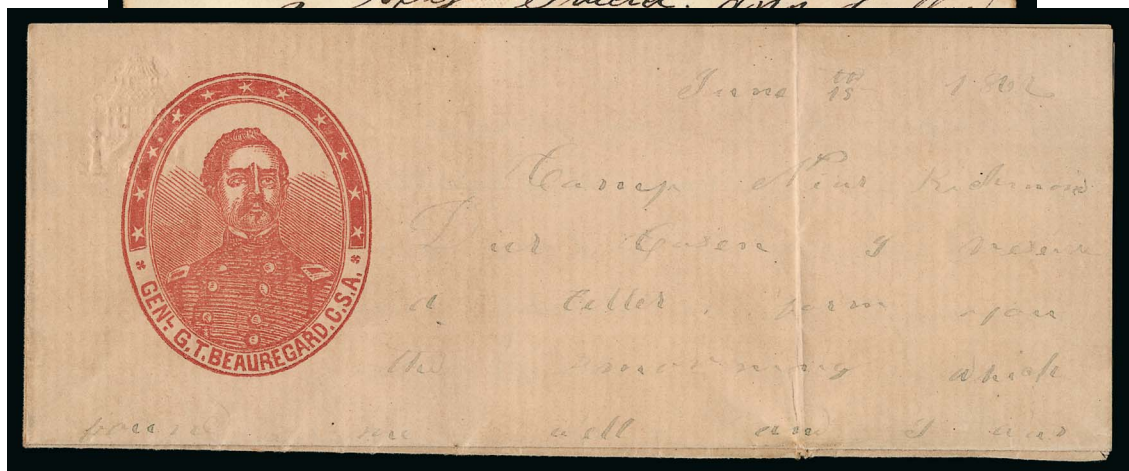 GENL. G.T. BEAUREGARD. C.S.A.
June 15 1862
Camp Niar Richmond
Dur Cosen I
a letter form you
the morning which
me well and I was